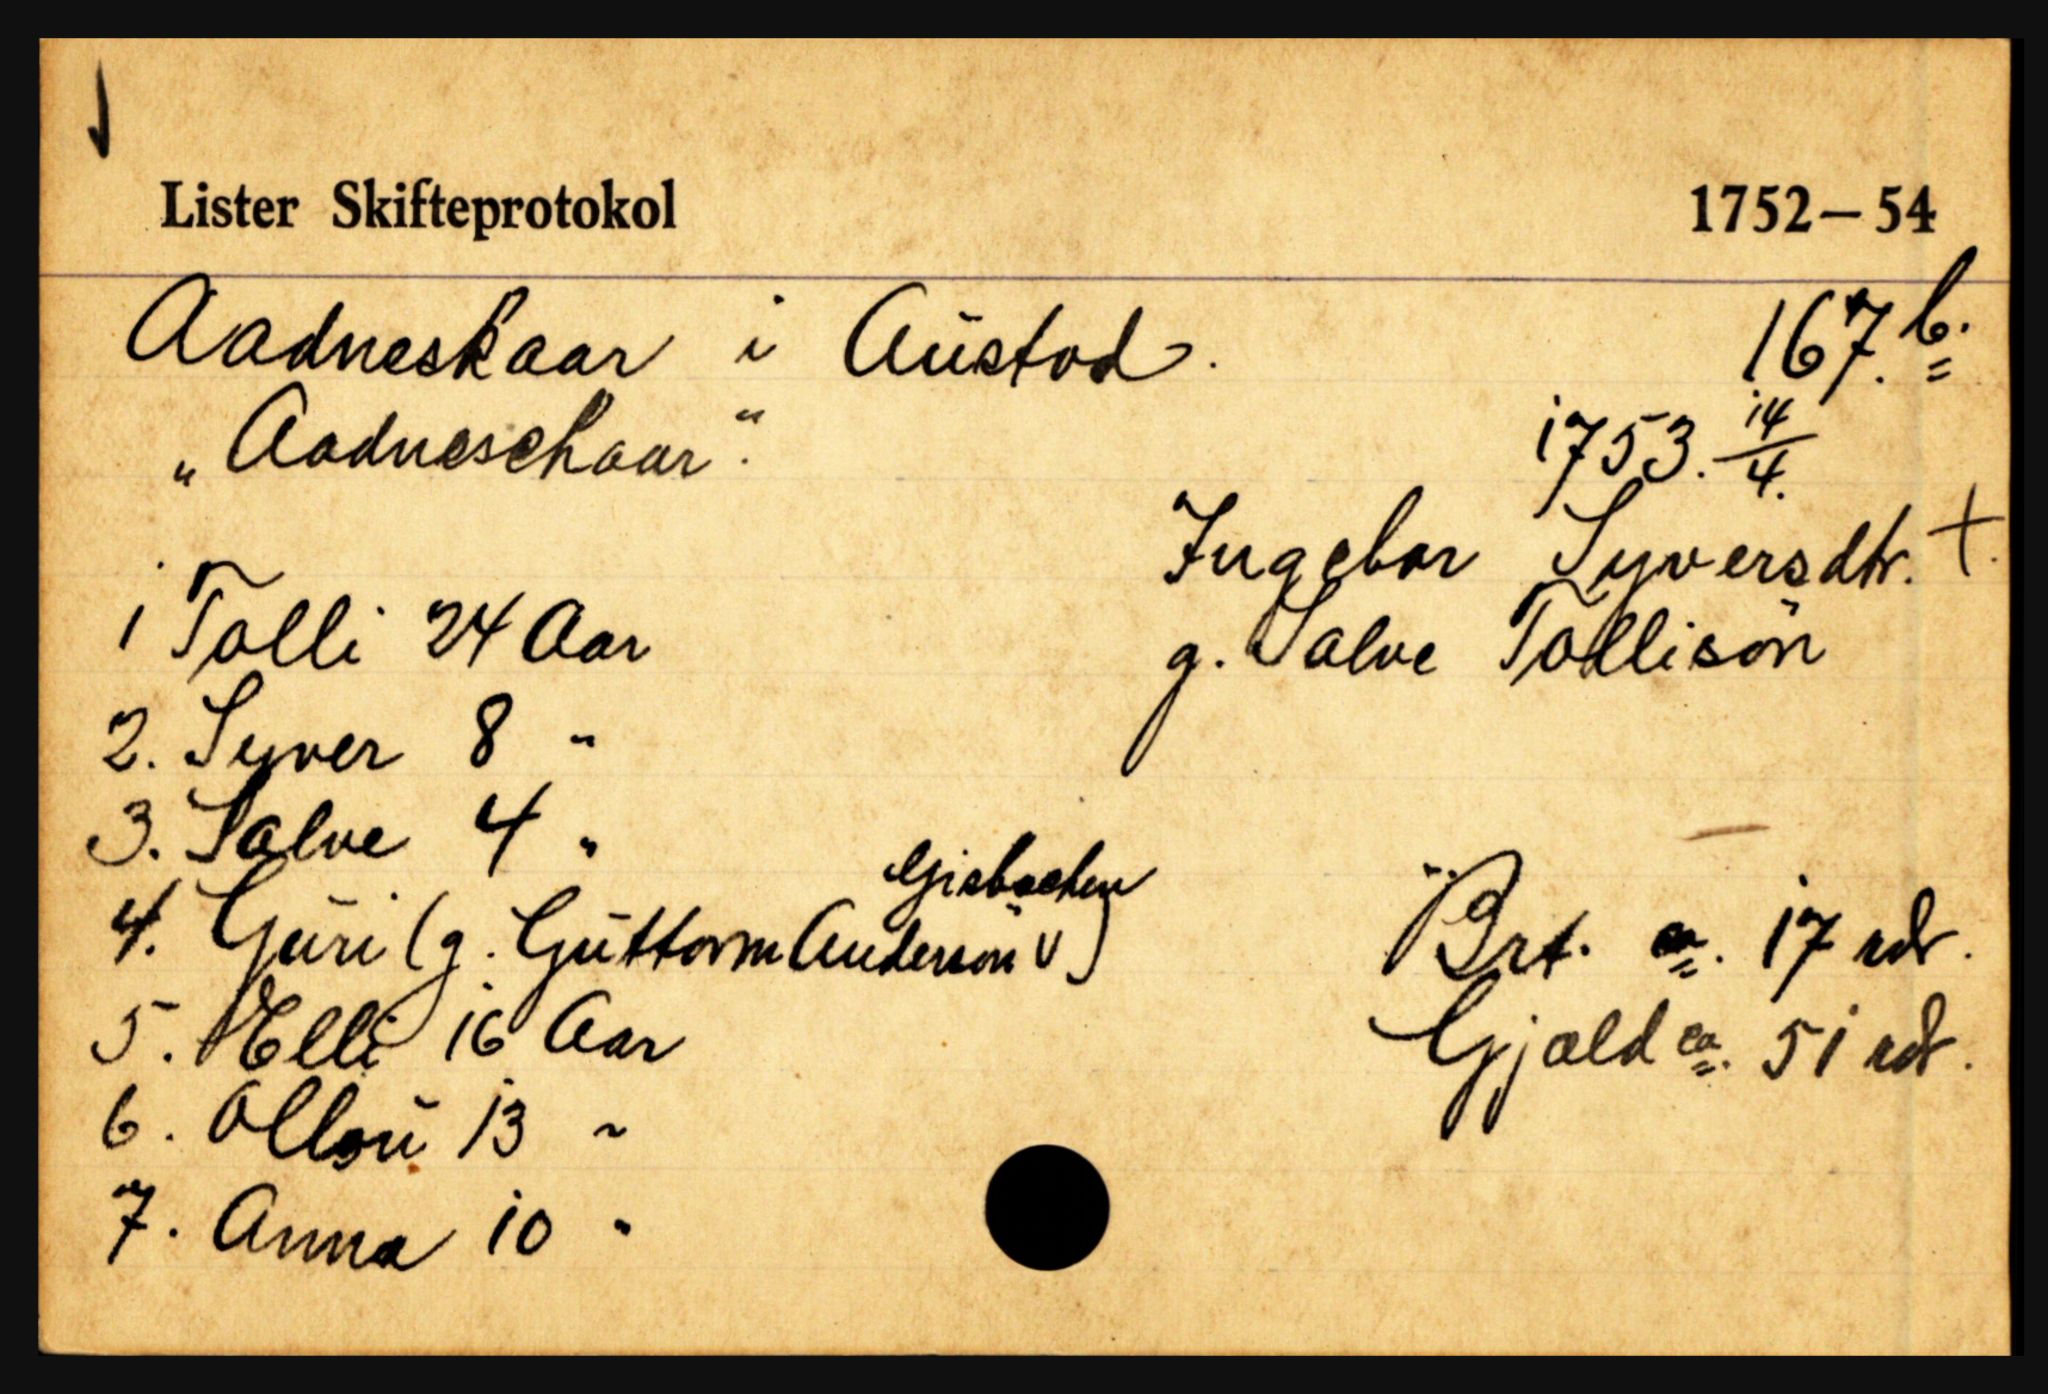 Lister Skifteprotokol 1752–54
Aadneskaar i Austad. 167. b.
„Aadneschaar". 1753. 14/4.
Ingebor Syversdtr. +.
1 Tolli 24 Aar g. Salve Tollisön
2. Syver 8 "
3. Salve 4 "
Gisbachen
4. Guri (g. Guttorm Anderson v) Brt. ca. 17 rdr.
5. Elli 16 Aar Gjæld ca. 51 rdr.
6. Ollou 13 "
7. Anna 10 "